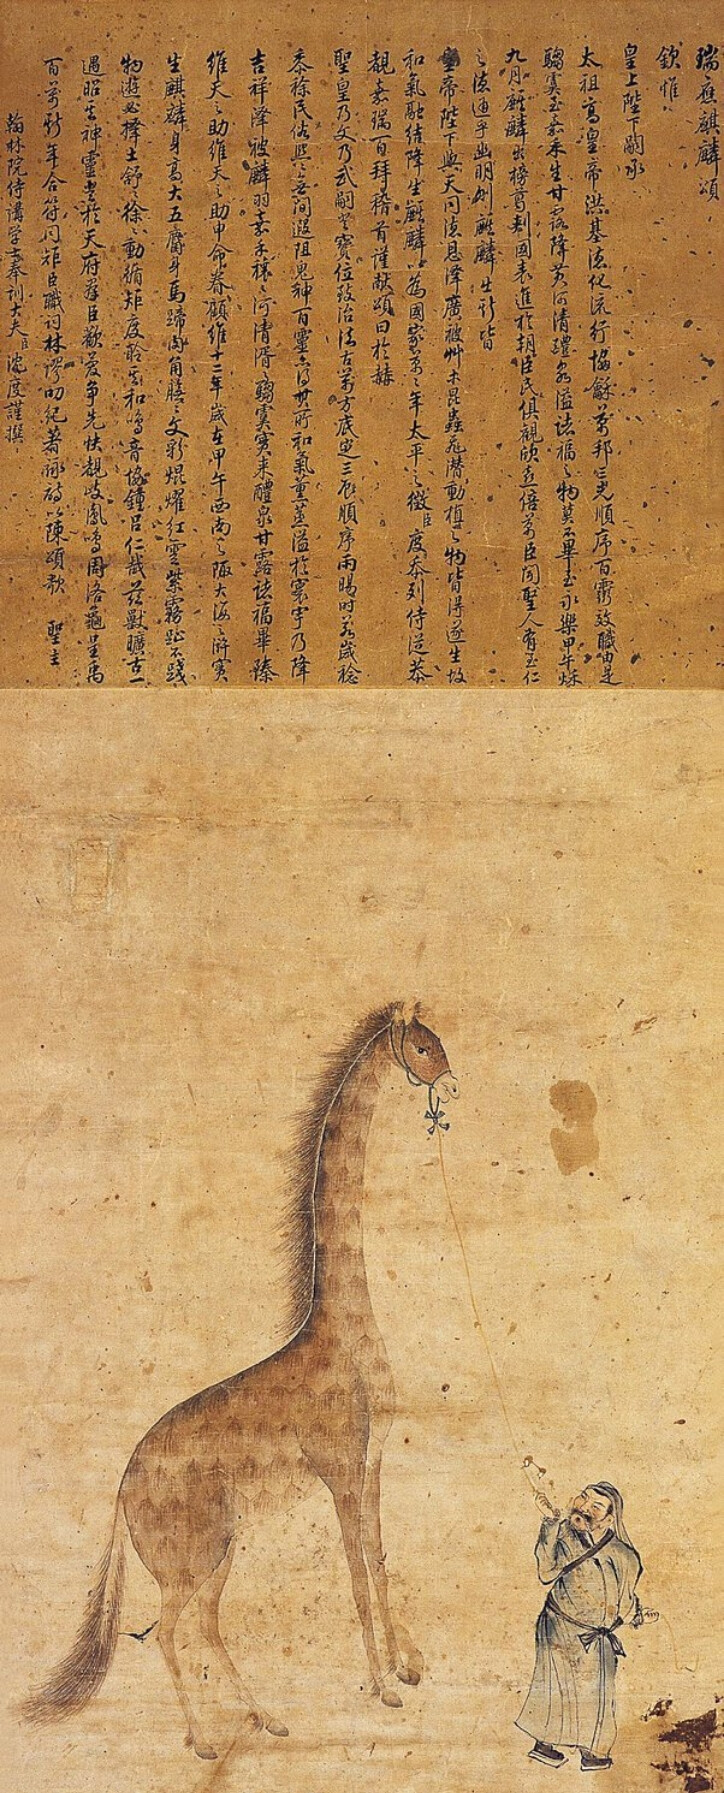 瑞應麒麟頌
欽惟
皇上陛下嗣承
太祖高皇帝洪基德化流行協龢萬邦三光順序百靈效職由是
騶虞至嘉禾生甘露降黃河清醴泉溢諸福之物莫不畢至永樂甲午秋
九月麒麟出榜葛剌國表進於朝臣民俱觀欣慶倍萬臣聞聖人有至仁
之德通乎幽明則麒麟生斯皆
皇帝陛下與天同德恩澤廣被艸木昆蟲飛潛動植之物皆得遂生故
和氣融結降生麒麟以為國家萬々年太平之徵臣度忝列侍從恭
覩嘉瑞百拜稽首謹獻頌曰於赫
聖皇乃文乃武嗣登寶位致治法古萬方底定三辰順序雨暘時若歲稔
黍稌民俗熙々無間遐阻鬼神百靈各得其所和氣薰蒸溢於寰宇乃降
吉祥澤被麟羽嘉禾穰々河清湑々騶虞實来醴泉甘露諸福畢臻
維天之助維天之助申命眷顧維十二年歲在甲午西南之陬大海之滸實
生麒麟身高丈五麕身馬蹄肉角膴々文彩焜燿紅雲紫霧趾不踐
物遊必擇土舒々徐々動循矩度聆其和鳴音協鐘呂仁哉茲獸曠古一
遇昭其神靈登於天府羣臣歡慶爭先快覩岐鳳鳴周洛龜呈禹
百萬斯年合符同矩臣職詞林謬叨紀著詠詩以陳頌歌 聖主
翰林院侍講學士奉訓大夫臣沈度謹撰